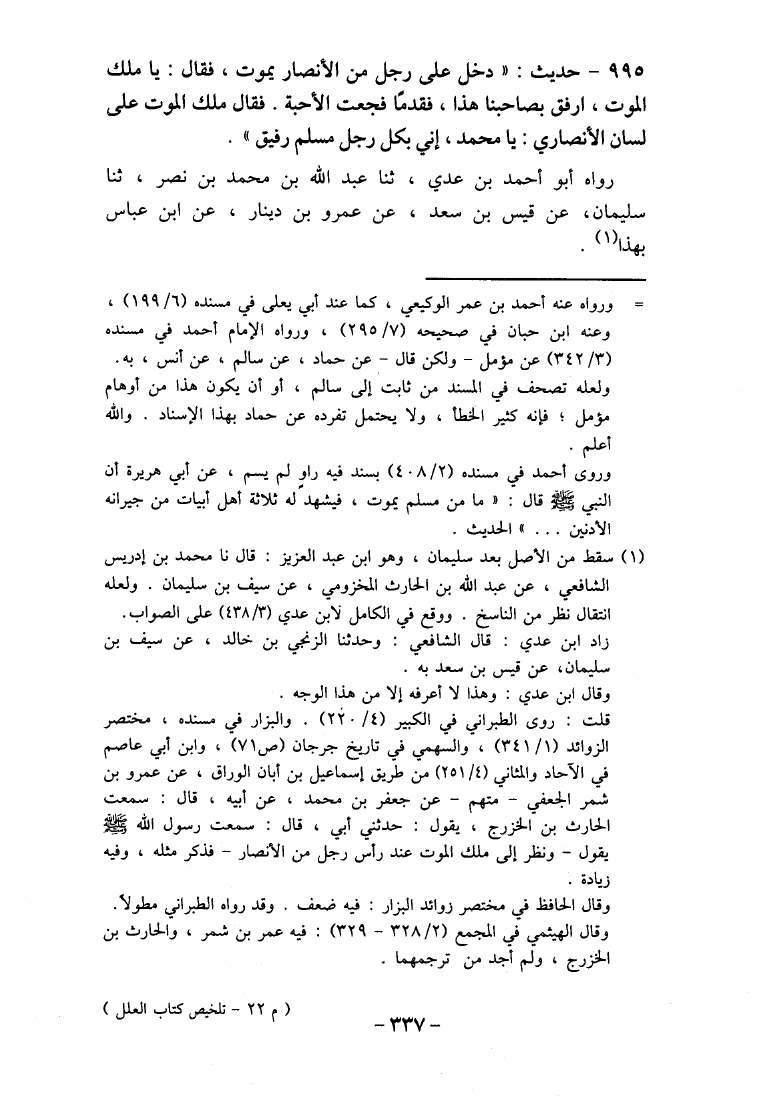 ٩٩٥ – حديث : « دخل على رجل من الأنصار يموت ، فقال : يا ملك
الموت ، ارفق بصاحبنا هذا ، فقدمًا فجعت الأحبة . فقال ملك الموت على
لسان الأنصاري : يا محمد ، إني بكل رجل مسلم رفيق » .
رواه أبو أحمد بن عدي ، ثنا عبد الله بن محمد بن نصر ، ثنا
سليمان، عن قيس بن سعد ، عن عمرو بن دينار ، عن ابن عباس
بهذا(١) .
= ورواه عنه أحمد بن عمر الوكيعي ، كما عند أبي يعلى في مسنده (١٩٩/٦) ،
وعنه ابن حبان في صحيحه (٢٩٥/٧) ، ورواه الإمام أحمد في مسنده
(٣٤٢/٣) عن مؤمل – ولكن قال – عن حماد ، عن سالم ، عن أنس ، به.
ولعله تصحف في المسند من ثابت إلى سالم ، أو أن يكون هذا من أوهام
مؤمل ؛ فإنه كثير الخطأ ، ولا يحتمل تفرده عن حماد بهذا الإسناد . والله
أعلم .
وروى أحمد في مسنده (٤٠٨/٢) بسند فيه راوٍ لم يسم ، عن أبي هريرة أن
النبي ﷺ قال : « ما من مسلم يموت ، فيشهد له ثلاثة أهل أبيات من جيرانه
الأدنين ... » الحديث .
(١) سقط من الأصل بعد سليمان ، وهو ابن عبد العزيز : قال نا محمد بن إدريس
الشافعي ، عن عبد الله بن الحارث المخزومي ، عن سيف بن سليمان . ولعله
انتقال نظر من الناسخ . ووقع في الكامل لابن عدي (٤٣٨/٣) على الصواب.
زاد ابن عدي : قال الشافعي : وحدثنا الزنجي بن خالد ، عن سيف بن
سليمان، عن قيس بن سعد به .
وقال ابن عدي : وهذا لا أعرفه إلا من هذا الوجه .
قلت : روى الطبراني في الكبير (٢٢٠/٤) . والبزار في مسنده ، مختصر
الزوائد (٣٤١/١) ، والسهمي في تاريخ جرجان (ص٧١) ، وابن أبي عاصم
في الآحاد والمثاني (٢٥١/٤) من طريق إسماعيل بن أبان الوراق ، عن عمرو بن
شمر الجعفي – متهم – عن جعفر بن محمد ، عن أبيه ، قال : سمعت
الحارث بن الخزرج ، يقول : حدثني أبي ، قال : سمعت رسول الله ﷺ
يقول – ونظر إلى ملك الموت عند رأس رجل من الأنصار – فذكر مثله ، وفيه
زيادة .
وقال الحافظ في مختصر زوائد البزار : فيه ضعف . وقد رواه الطبراني مطولاً.
وقال الهيثمي في المجمع (٣٢٨/٢ – ٣٢٩) : فيه عمر بن شمر ، والحارث بن
الخزرج ، ولم أجد من ترجمهما .
( م ٢٢ – تلخيص كتاب العلل )
– ٣٣٧ –